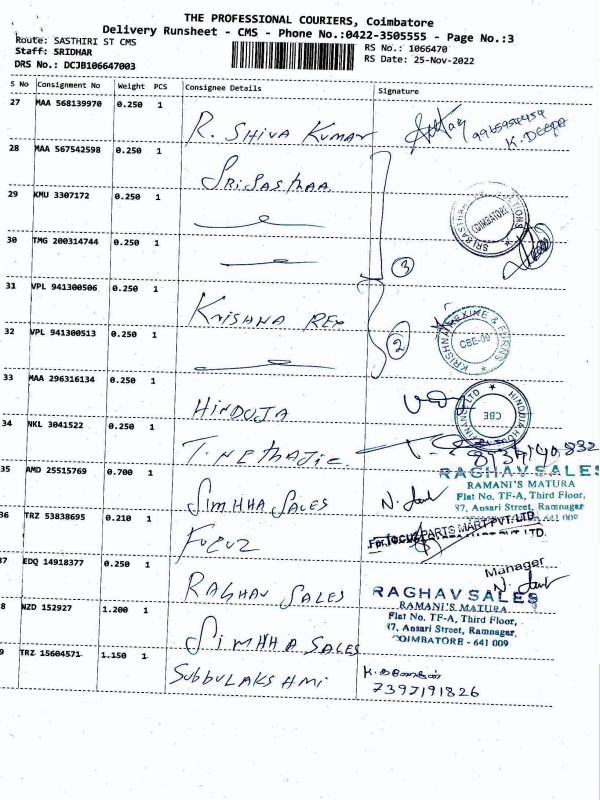 THE PROFESSIONAL COURIERS, Coimbatore
Delivery Runsheet - CMS - Phone No.:0422-3505555 - Page No.:3
Route: SASTHIRI ST CMS
Staff: SRIDHAR
DRS No.: DCJB106647003
RS No.: 1066470
RS Date: 25-Nov-2022
S No Consignment No Weight PCS Consignee Details Signature
27 MAA 568139970 0.250 1 R. SHIVA KUMAR
K. DEEPA
28 MAA 567542598 0.250 1 SRISASTHAA
29 KMU 3307172 0.250 1
COIMBATORE
30 TMG 200314744 0.250 1
3
31 VPL 941300506 0.250 1 KRISHNA REX
KRISHNA REXINE & FURNS
CBE-09
32 VPL 941300513 0.250 1
2
33 MAA 296316134 0.250 1 HINDUJA
CBE
34 NKL 3041522 0.250 1 T. NETHAJIE
35 AMD 25515769 0.700 1 SIMHHA SALES
RAGHAV SALES
RAMANI'S MATURA
Flat No. TF-A, Third Floor,
37, Ansari Street, Ramnagar
641 009
36 TRZ 53838695 0.210 1 FOCUZ
For FOCUZ PARTS MART PVT. LTD.
37 EDQ 14918377 0.250 1 RAGHAV SALES
Manager
RAGHAV SALES
RAMANI'S MATURA,
Flat No. TF-A, Third Floor,
37, Ansari Street, Ramnagar,
COIMBATORE - 641 009
8 NZD 152927 1.200 1 SIMHHA SALES
9 TRZ 15604571 1.150 1 SUBBULAKSHMI
7397191826